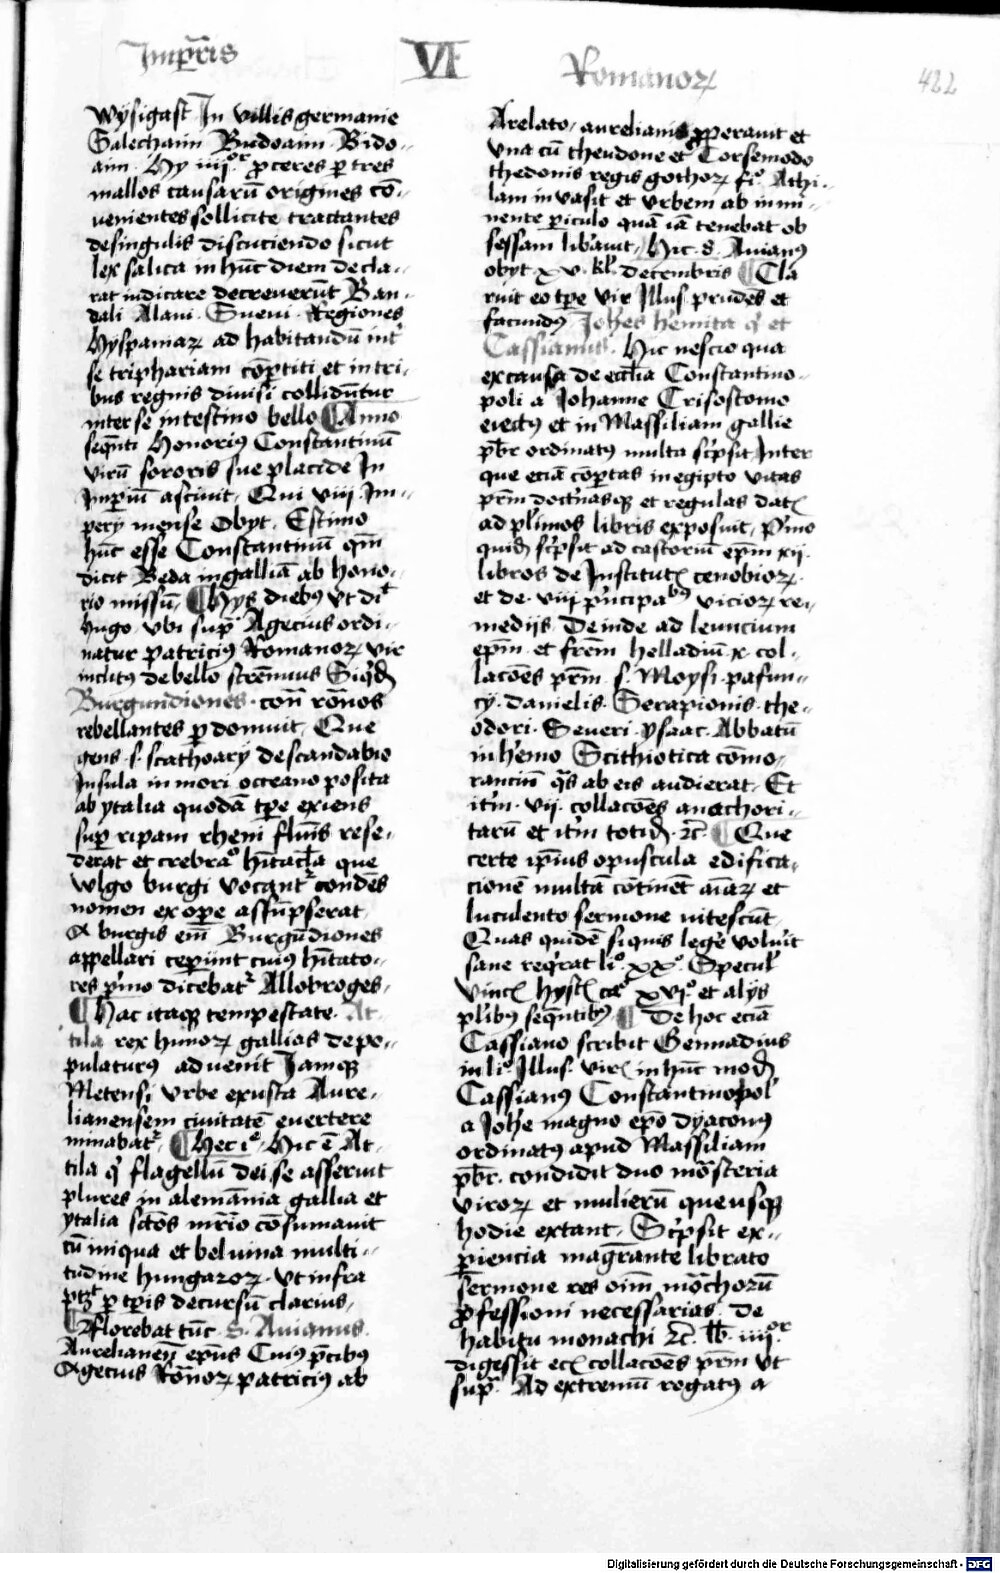 Imꝑr̄is VI Romanoꝝ
422
wysigast In villis germanie
Salechaim Budoaim Bido-
aim. Hy iiii.or ꝓceres ꝑ tres
mallos causarū origines cō-
uenientes sollicite tractantes
desingulis discuciendo sicut
lex salica in hūc diem decla-
rat iudicare decreuerūt Ban-
dali Alani. Sueui. Regiones
Hyspaniaꝝ ad habitandū int̄
se triphariam cōꝑtiti et in tri-
bus regnis diuisi colliduntur
inter se intestino bello Anno
seqn̄ti Honoriꝰ Constantinū
virū sororis sue placide In
Imꝑiū asciuit, Qui viij. Im-
pery mense Obyt. Estimo
hūc esse Constantinū qm̄
dicit Beda in galliā ab hono-
rio missū, Hys diebꝰ vt dic̄
Hugo. vbi sup̄ Agecius ordi-
natur patriciꝰ Romanoꝝ vir
inclitꝰ de bello strēnuus Siqͥdē
Burgundiones con̄ rōnos
rebellantes ꝑdomuit, Que
gens .s. scathoary de scandabio
Insula in mori occeano posita
ab ytalia quodā tꝑe exiens
suꝑ ripam rheni fluīs rese-
derat et crebra hītac̄la que
wlgo burgi vocantᷣ condēs
nomen ex oꝑe assūpserat
A burgis em̄ Burgūdiones
appellari ceperunt cuiꝰ hītato-
res pͥmo dicebātᷣ Allobroges.
Hac itaqꝫ tempestate. At-
tila rex hunoꝝ gallias depe-
pulaturꝰ aduenit Iamqꝫ
Metensi vrbe exusta Aure-
lianensem ciuitatē euertere
minabatᷣ. Hec i.o Hic ē At-
tila qͥ flagellū dei se asseruit
plures in alemānia gallia et
ytalia sc̄tōs mr̄rio cōsumauit
cū iniqua et beluina multi-
tudine hungaroꝝ. vt infra
ptꝫ ꝑ tꝑis decursū clarius,
Florebat tūc. S. Anianus.
Aurelianen̄ ep̄us Cuiꝰ p̄cibꝰ
Agecius Rōnoꝝ patriciꝰ ab
Arelato, aurelianis ꝓperauit et
vna cū theudone et Torsemodo
thedonis regis gothoꝝ fi.o Athi-
lam inuasit et vrbem ab immi-
nente ꝑiculo quā iā tenebat ob
sessam lib̄auit, Hic. S. Anianꝰ
obyt. xv. kl̄. decembris Cla
ruit eo tꝑe vir Illus. prudēs et
facundꝰ Joh̄es h̄emita qͥ et
Cassianus. Hic nescio qua
ex causa de ecc̄lia Constantino-
poli a Johanne Crisostomo
eiectꝰ et in Massiliam gallie
pb̄r ordinatꝰ multa sc̄psit Inter
que eciā cōꝑtas in egipto vitas
pr̄m doctͥnasqꝫ et regulas dat
ad plͥimos libris exposuit, Pͥmo
quid̄ sc̄psit ad castoriū ep̄m xij.
libros de Institut cenobioꝝ.
et de. viij pͥncipabꝰ vicioꝝ re-
medijs. Deinde ad leuncium
ep̄m et fr̄em helladiū x. col-
lacōes pr̄m .s. Moysi. pafun-
cy. danielis. Serapionis. the-
odori. Seueri. ysaac. Abbatū
in h̄emo Scithiotica cōmo-
ranciū qͣs ab eis audierat. Et
it̄m. vij. collacōes anachori-
tarū et it̄m totid̄. ⁊c̄. Que
certe ip̄ius opuscula edifica-
cionē multā cōtinēt aīaꝝ et
luculento sermone nitescūt.
Quas quidē siquis leḡe voluit
sane reqͥrat li.o xx.o Specul̄
vinc̄ hyst̄ ca.o xvj.o et alijs
plͥibꝰ seqn̄tibꝰ. De hoc eciā
Cassiano scribit Gennadius
in li.o Illus. vir̄ in hūc mod̄
Cassianꝰ Constantinopol̄
a Joh̄e magno ep̄o dyaconꝰ
ordinatꝰ apud Massiliam
pb̄r. condidit duo mōsteria
viroꝝ et mulierū que usqꝫ
hodie extant. Sc̄psit ex-
ꝑiencia magrante librato
sermone res oīm mōchorū
ꝓfessioni necessarias. De
habitu monachi ⁊c̄. lib̄. iiii.or
digessit ec̄ collacōes pr̄m vt
sup̄. Ad extremū rogatꝰ a
Digitalisierung gefördert durch die Deutsche Forschungsgemeinschaft - DFG